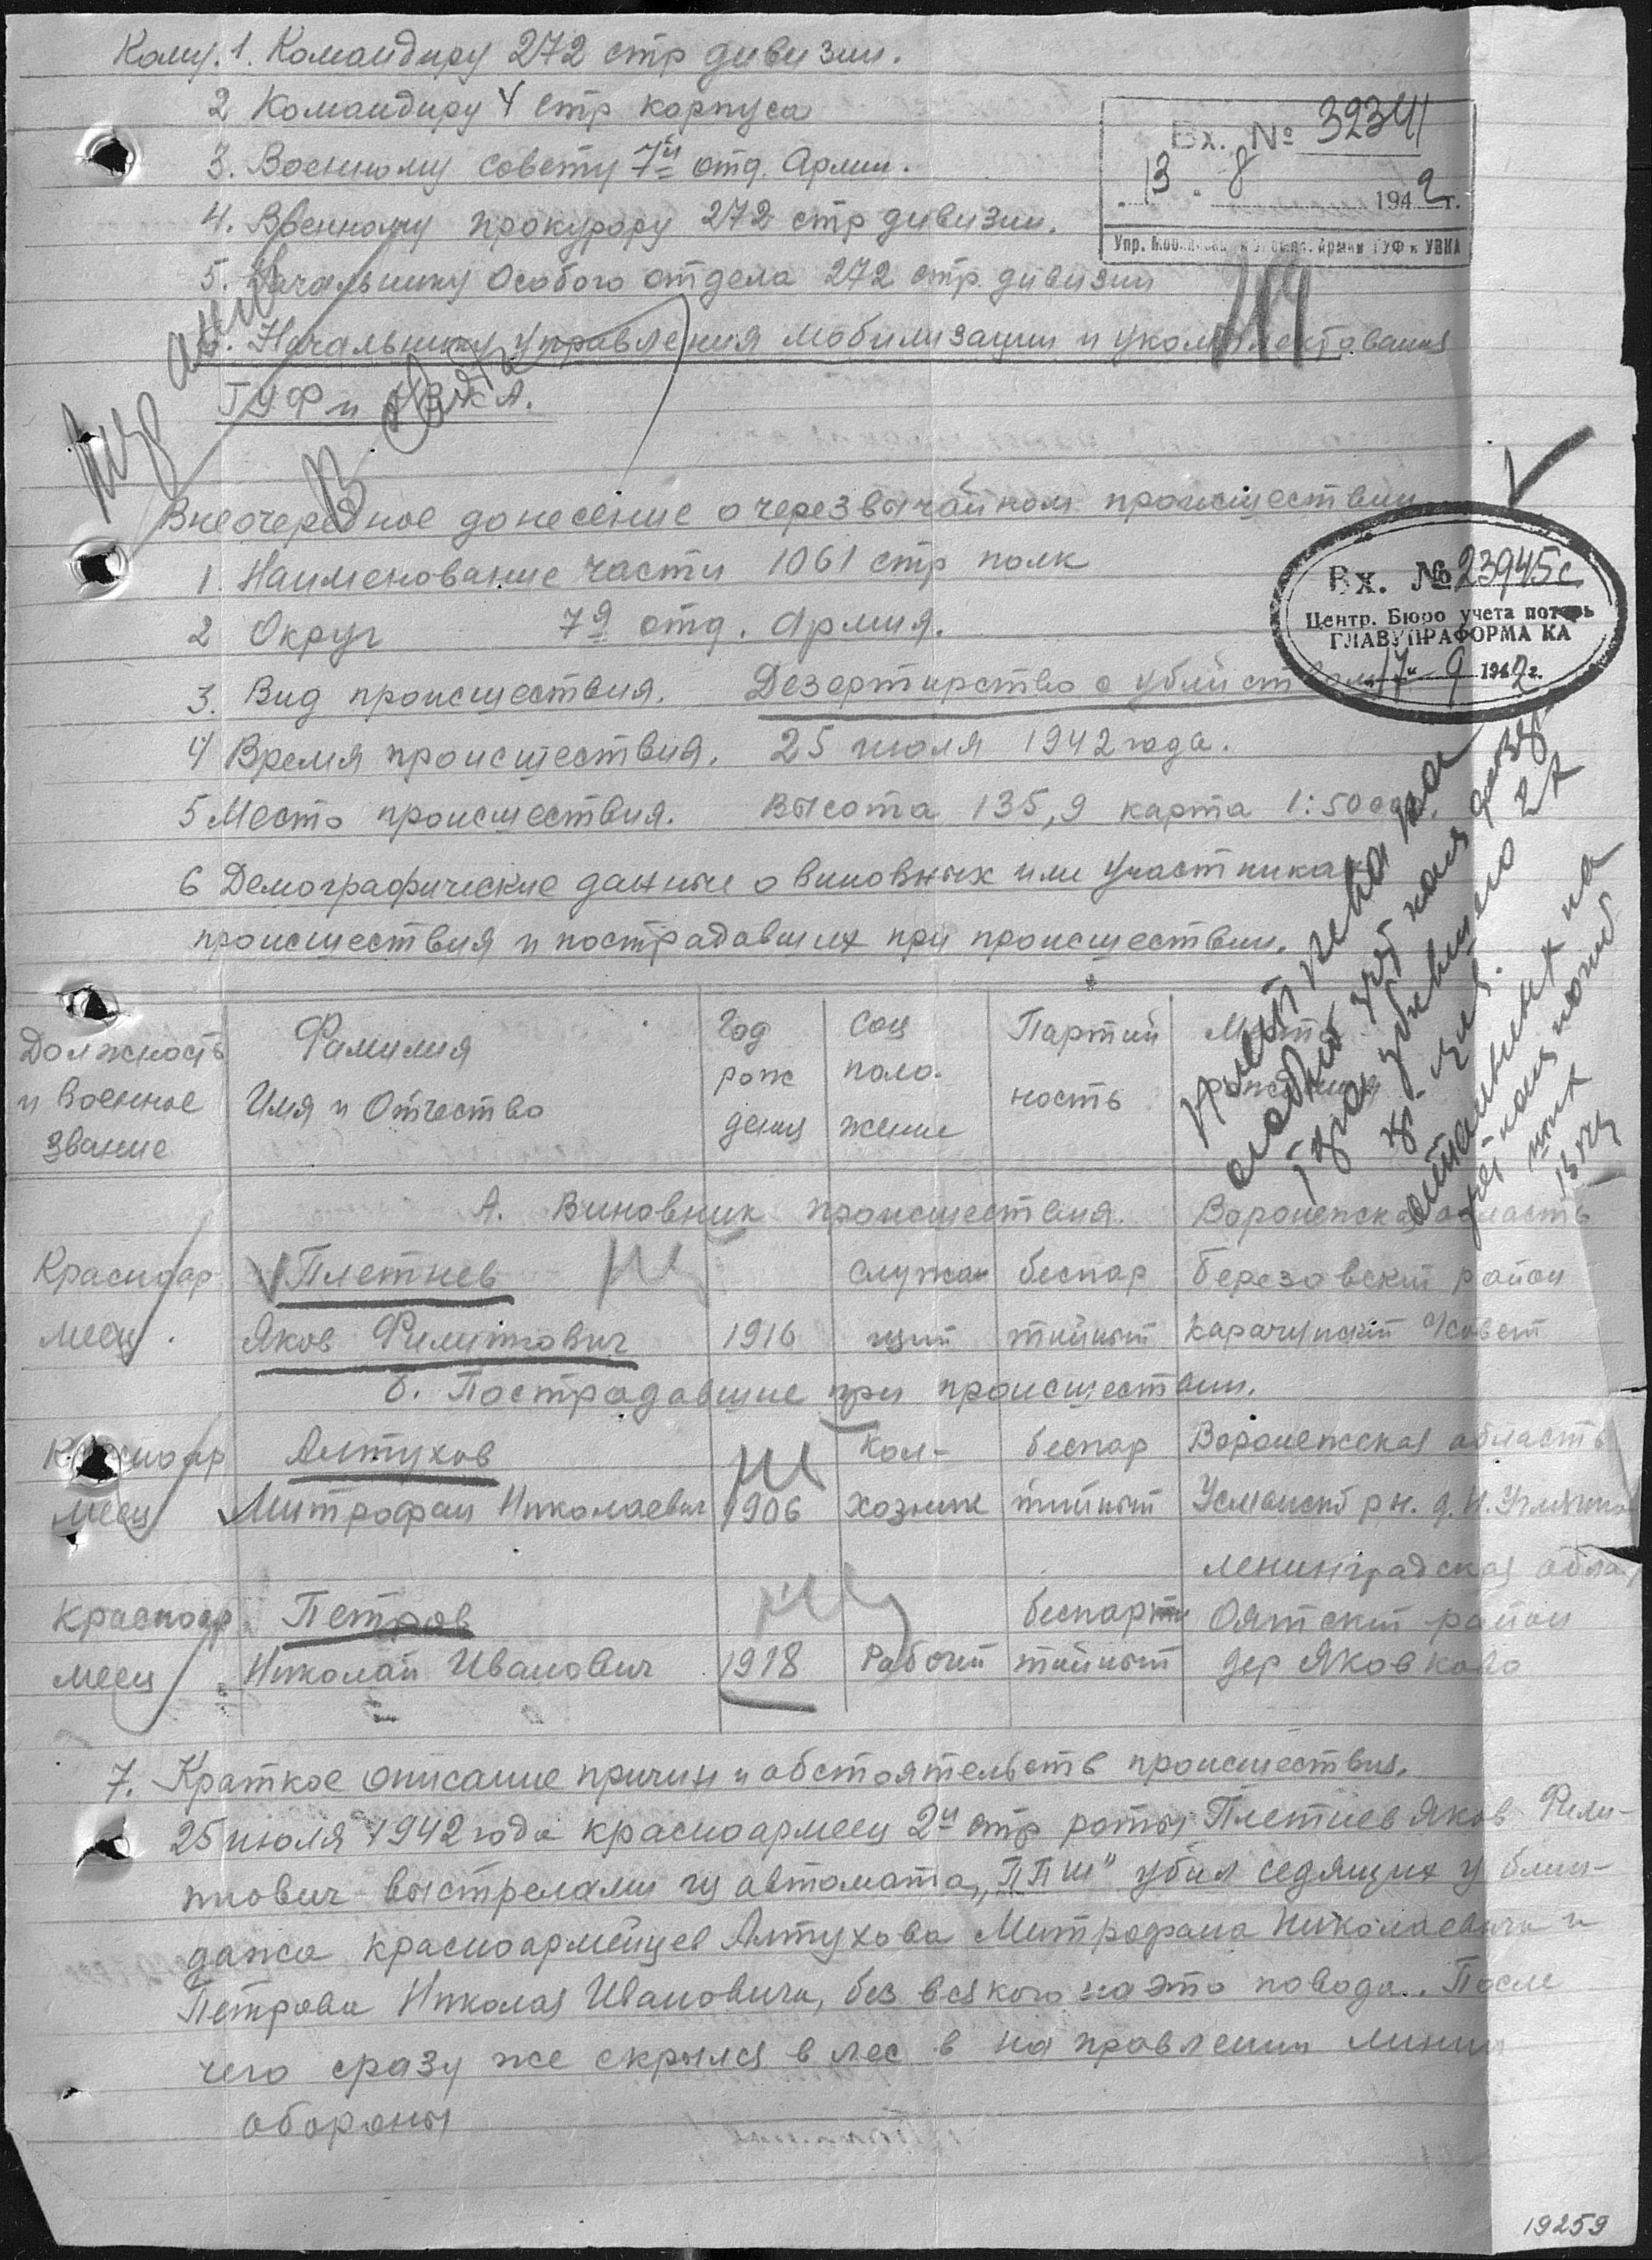 Кому. 1. Командиру 272 стр дивизии.
2 Командиру 4 стр корпуса
3. Военному совету 7й отд. Армии.
4. Военному прокурору 272 стр дивизии.
5. Начальнику Особого отдела 272 стр. дивизии
Начальнику управления мобилизации и укомплектования
ГУФ и УВКА.
Вх. № 32341
13 8 1942 г.
Упр. Армии ГУФ и УВКА
Внеочередное донесение о черезвычайном происшествии
1 Наименование части 1061 стр полк
2 Округ 7я отд. Армия.
3. Вид происшествия. Дезертирство с убийст
4 Время происшествия. 25 июля 1942 года.
5 Место происшествия. Высота 135,9 карта 1:50000.
6 Демографические данные о виновных или участниках
происшествия и пострадавших при происшествии.
Вх. № 23945с
Центр. Бюро учета потерь
ГЛАВУПРАФОРМА КА
17 9 1942 г.
Должность и военное звание
Фамилия Имя и Отчество
Год рождения
Соц положение
Партийность
Место рождения
А. Виновник происшествия. Воронежская область
Красноар Плетнев служа беспар Березовский район
меец Яков Филипович 1916 щий тийный Карачунский с/совет
Б. Пострадавшие при происшествии.
Красноар Алтухов Кол- беспар Воронежская область
меец Митрофан Николаевич 1906 хозник тийный Усманский рн. д.
Ленинградская обла
Красноар Петров беспарти Оятский район
меец Николай Иванович 1918 Рабочий тийный дер Яковково
7. Краткое описание причин и обстоятельств происшествия.
25 июля 1942 года красноармеец 2й стр роты Плетнев Яков Фили-
пович выстрелами из автомата „ППШ" убил седящих у блин-
дажа красноармейцев Алтухова Митрофана Николаевича и
Петрова Николая Ивановича, без всякого на это повода. После
чего сразу же скрылся в лес в на правлении линии
обороны
19259